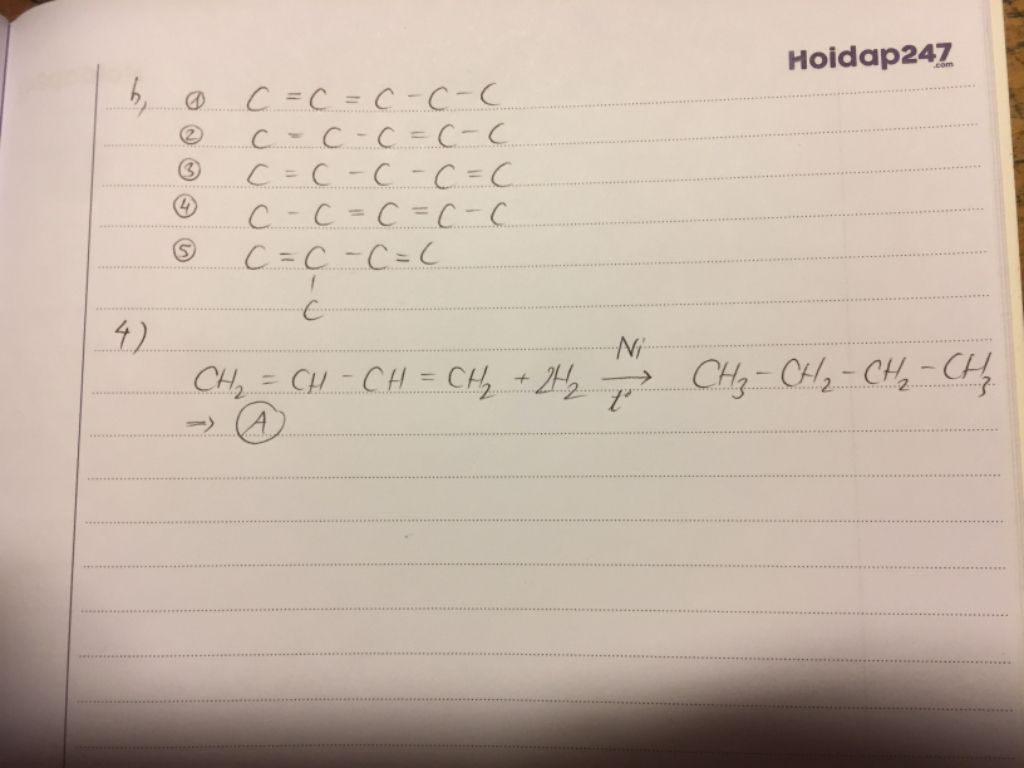 Hoidap247
.com
b, ① C = C = C - C - C
② C = C - C = C - C
③ C = C - C - C = C
④ C - C = C = C - C
⑤ C = C - C = C
|
C
4)
Ni
CH₂ = CH - CH = CH₂ + 2H₂ → CH₃ - CH₂ - CH₂ - CH₃
t°
=> Ⓐ